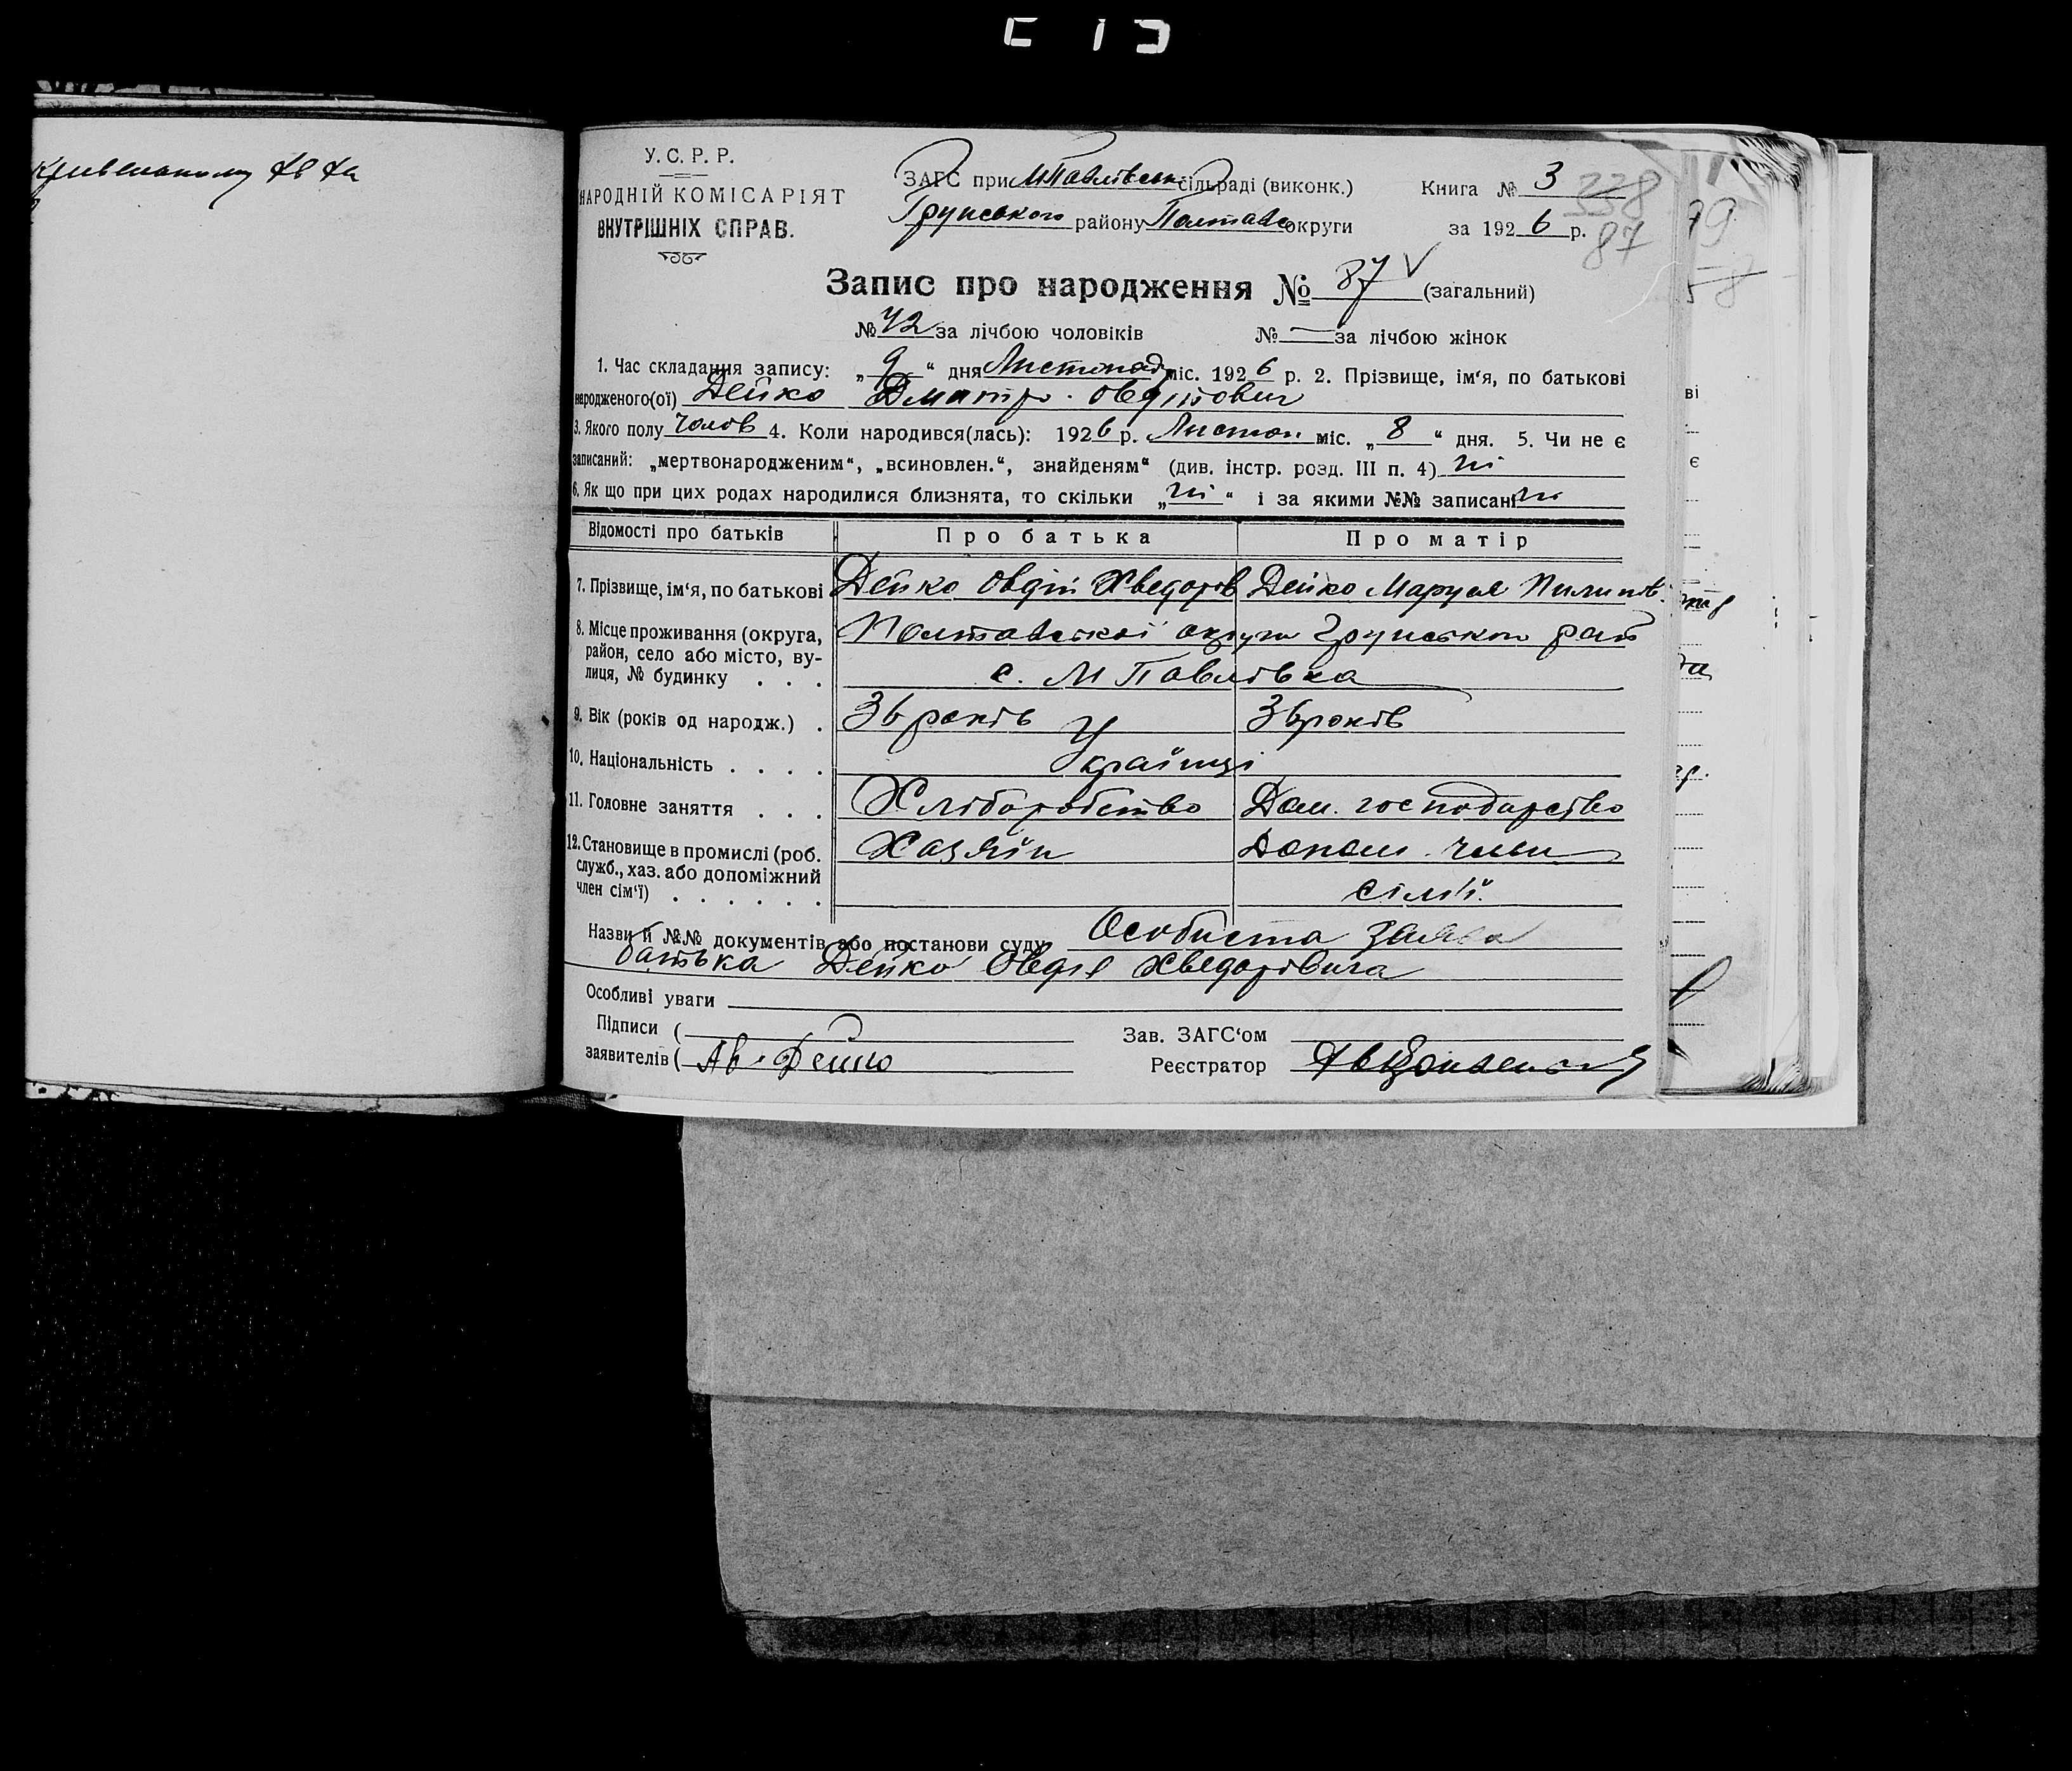 У. С. Р. Р.
НАРОДНІЙ КОМІСАРІЯТ
ВНУТРІШНІХ СПРАВ.
ЗАГС при МПавлівськ сільраді (виконк.)
Грунського району Полтавс округи
Книга № 3
за 1926 р.
338
87
Запис про народження № 87 (загальний)
№ 42 за лічбою чоловіків № — за лічбою жінок
1. Час складання запису: „ 9 “ дня Листопад міс. 1926 р. 2. Прізвище, ім‘я, по батькові
народженого(ої) Дейко Дмитро Овдійович
3. Якого полу Чолов 4. Коли народився(лась): 1926 р. Листоп міс. „ 8 “ дня. 5. Чи не є
записаний: „мертвонародженим“, „всиновлен.“, знайденям“ (див. інстр. розд. III п. 4) ні
6. Як що при цих родах народилися близнята, то скільки „ ні “ і за якими №№ записані ні
Відомості про батьків Про батька Про матір
7. Прізвище, ім‘я, по батькові Дейко Овдій Хведоров Дейко Маруся Пилипов.
8. Місце проживання (округа, Полтавської округи Грунського рай
район, село або місто, ву-
лиця, № будинку . . . с. МПавлівка
9. Вік (років од народж.) . 36 років 36 років
10. Національність . . . . Українці
11. Головне заняття . . . Хліборобство Дом. господарство
12. Становище в промислі (роб. Хазяїн Допом. член
служб., хаз. або допоміжний
член сім‘ї) . . . . . . сім'ї.
Назви й №№ документів або постанови суду Особиста заява
батька Дейко Овдія Хведоровича
Особливі уваги
Підписи (
заявителів ( Ав. Дейко
Зав. ЗАГС‘ом
Реєстратор